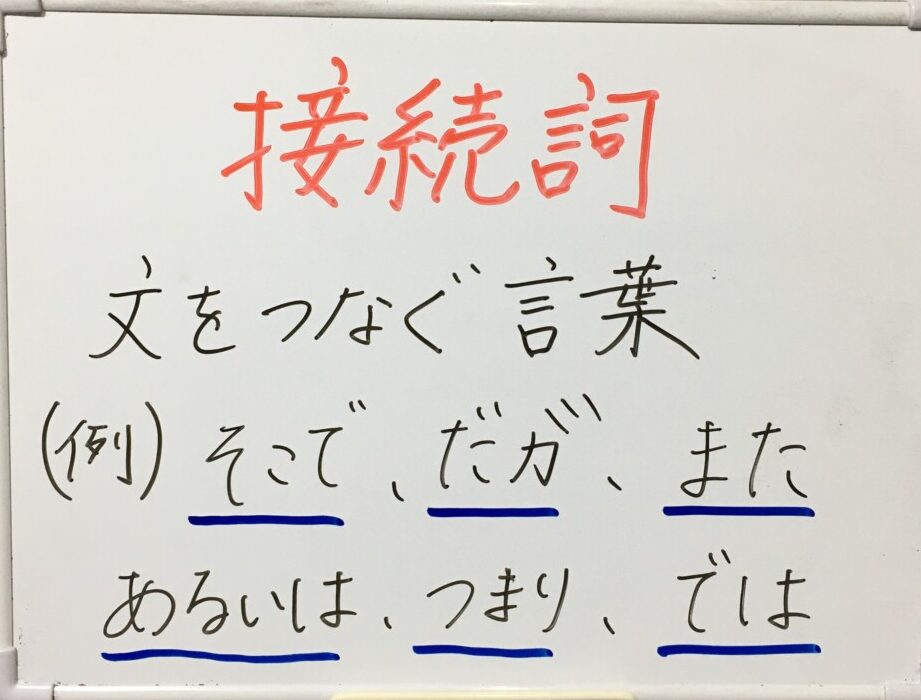 接続詞
文をつなぐ言葉
(例)そこで、だが、また
あるいは、つまり、では